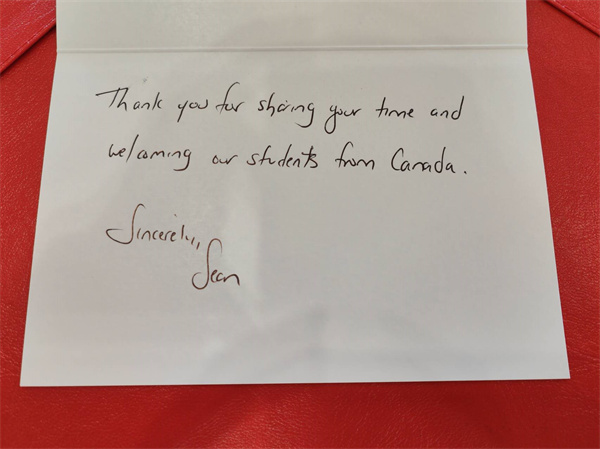 Thank you for sharing your time and
welcoming our students from Canada.
Sincerely,
Sean